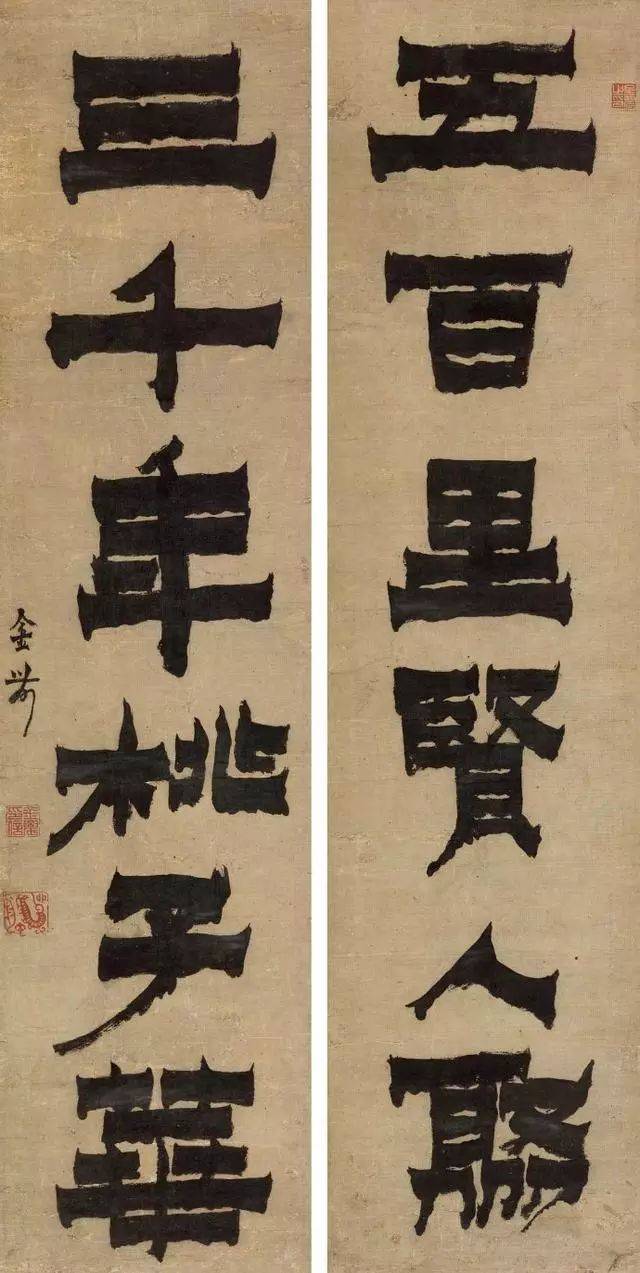 五百里賢人聚
三千年桃子華
金